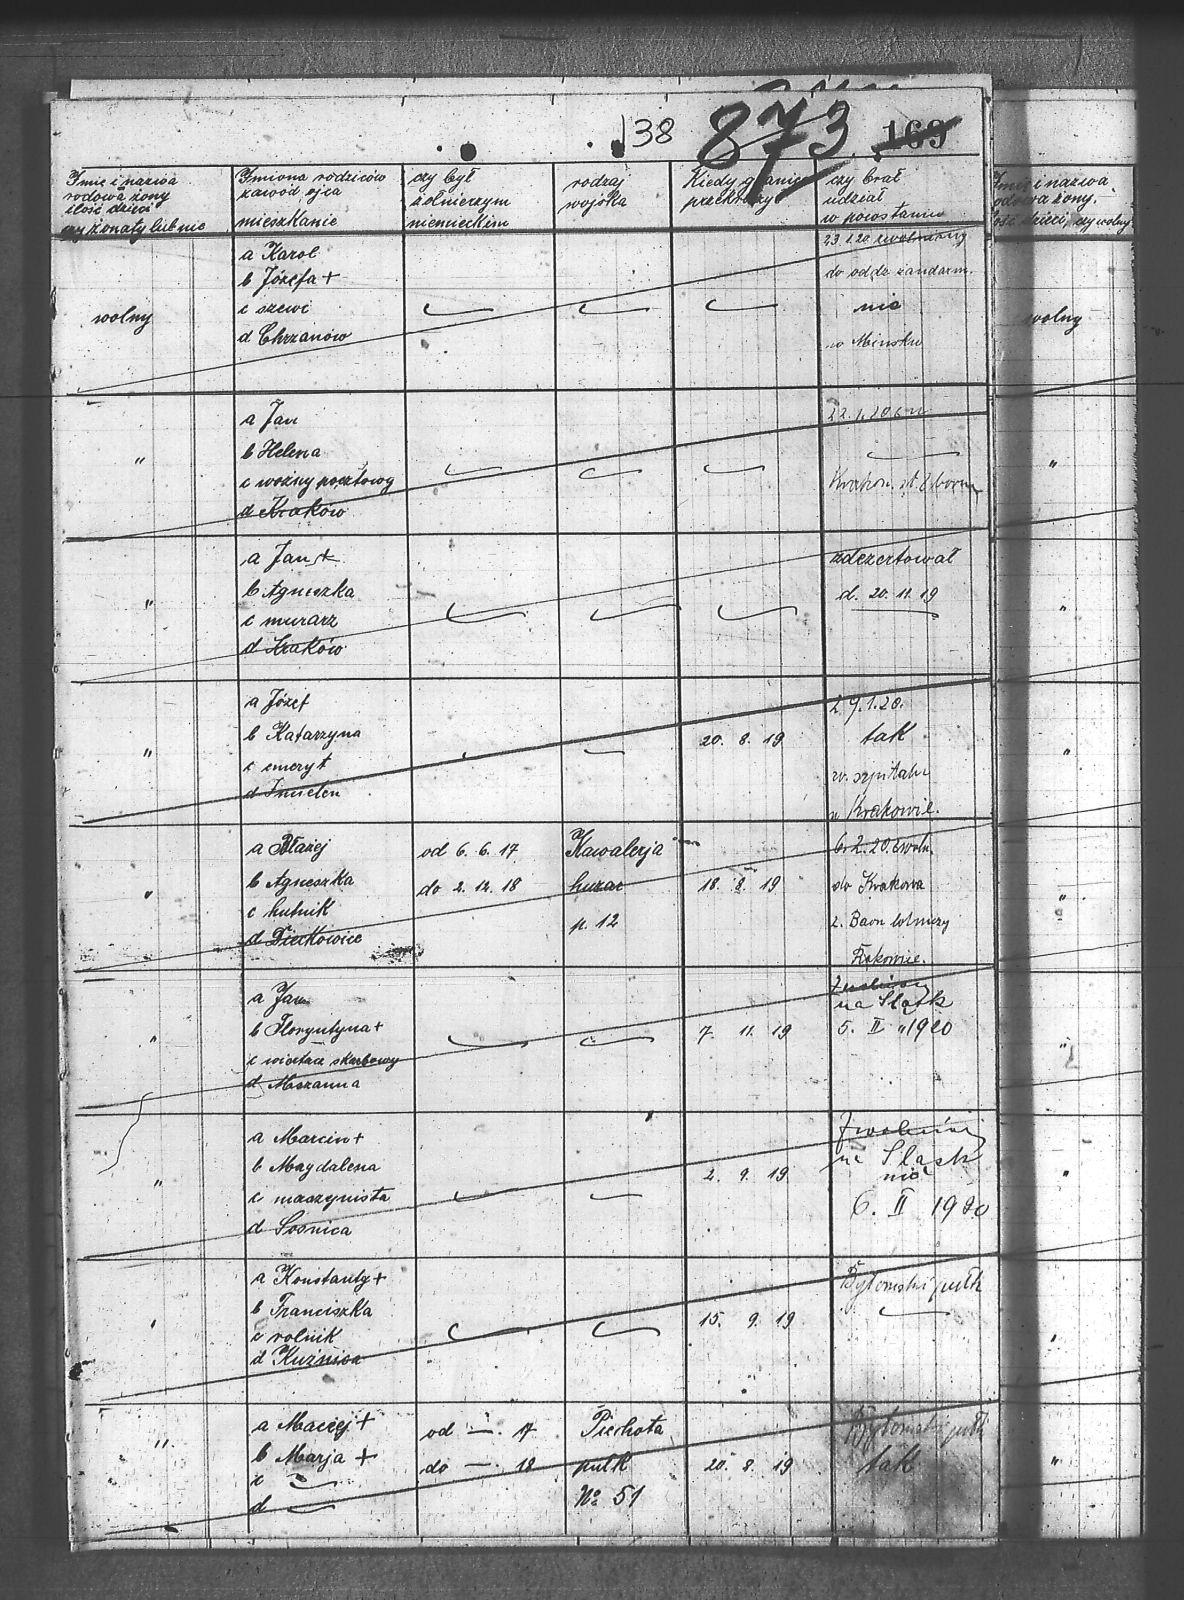 138 873 169
Imię i nazwa
rodowa żony
ilość dzieci
czy żonaty lub nie
Imiona rodziców
zawód ojca
mieszkanie
czy był
żołnierzem
niemieckim
rodzaj
wojska
Kiedy granicę
przekroczył
czy brał
udział
w powstaniu
Imię i nazwa
rodowa żony,
ilość dzieci, czy wolny
wolny
a Karol
b Józefa +
c szewc
d Chrzanów
23.1.20 zwolniony
do oddz żandarm.
nie
w Mińsku
wolny
"
a Jan
b Helena
c woźny pocztowy
d Kraków
22.1.20
"
"
a Jan +
b Agnieszka
c murarz
d Kraków
zdezertował
d. 20. 11. 19
"
"
a Józef
b Katarzyna
c emeryt
d Imielin
20. 8. 19
29.1.20.
tak
w szpitalu
w Krakowie.
"
"
a Błażej
b Agnieszka
c hutnik
d
od 6. 6. 17
do 2. 12. 18
Kawalerja
huzar
p. 12
18. 8. 19
6.2.20 zwoln.
do Krakowa
2. Baon lotniczy
"
"
a Jan
b Florentyna +
c skarbowy
d Mszanna
7. 11. 19
Zwolniony
na Śląsk
5. II 1920
"
"
a Marcin +
b Magdalena
c maszynista
d Sośnica
2. 9. 19
Zwolniony
na Śląsk
nie
6. II 1920
"
"
a Konstanty +
b Franciszka
c rolnik
d Kuźnica
15. 9. 19
Bytomski pułk
"
"
a Maciej +
b Marja +
c —
d —
od — . 17
do — . 18
Piechota
pułk
No 51
20. 8. 19
Bytomski pułk
tak
"